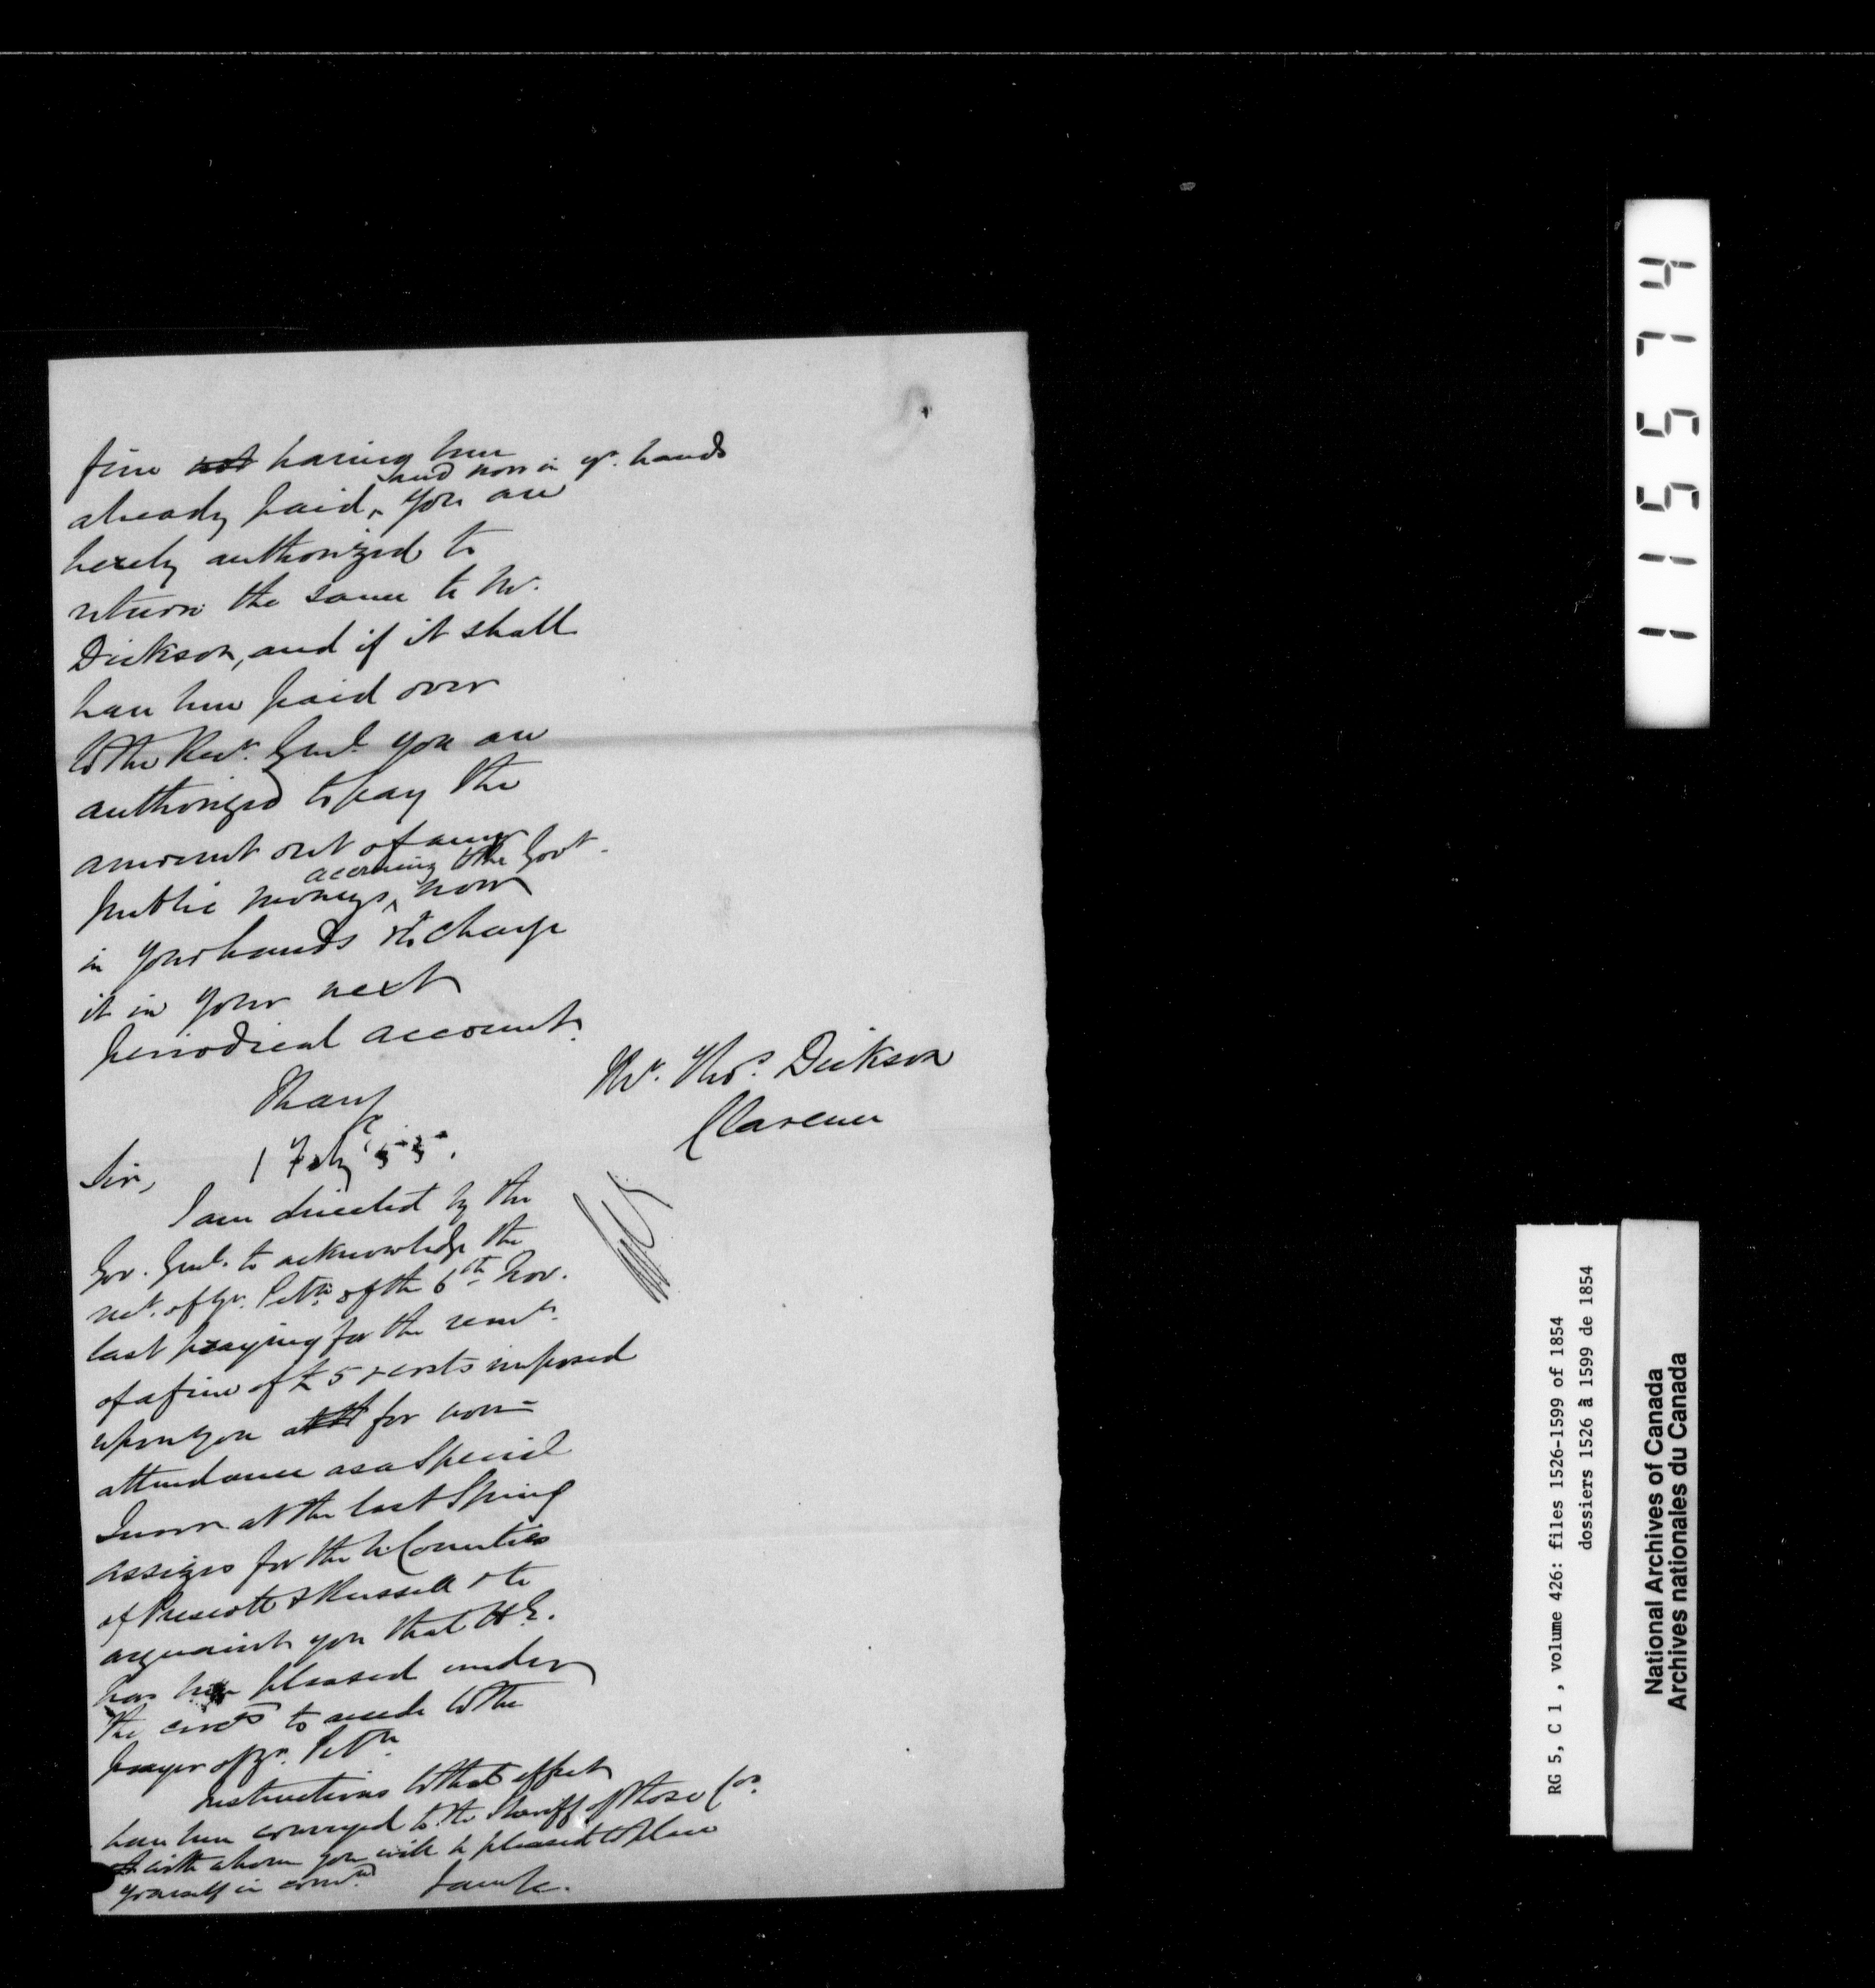 fine not having been
already paid, and now in yr. hands you are
hereby authorized to
return the same to Mr.
Dickson, and if it shall
have been paid over
to the Recr. Genl. you are
authorized to pay the
amount out of any
public moneys, accruing to the Govt. now
in your hands & to charge
it in your next
periodical account.
I have &c
1 Feby '55.
Mr. Thos. Dickson
Clarence
Sir,
I am directed by the
Gov. Genl. to acknowledge the
rect. of yr. Petn. of the 6th Nov.
last praying for the remn.
of a fine of £5 & costs imposed
upon you for non=
attendance as a Special
Juror at the last Spring
assizes for the U. Counties
of Prescott & Russell & to
acquaint you that H.E.
has been pleased under
the circes to accede to the
prayer of yr. Petn.
Instructions to that effect
have been conveyed to the Sheriff of those Cos.
with whom you will be pleased to place
yourself in comn.
I am &c.
1 1 5 5 7 4
RG 5, C 1 , volume 426: files 1526-1599 of 1854
dossiers 1526 à 1599 de 1854
National Archives of Canada
Archives nationales du Canada